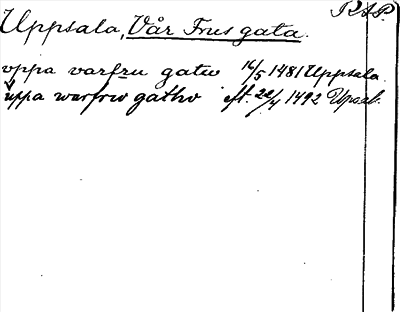 RAP.
Uppsala, Vår Frus gata.
vppa varfru gatu 16/5 1481 Uppsala
uppa warfrw gathw eft. 22/4 1492 Upsal.